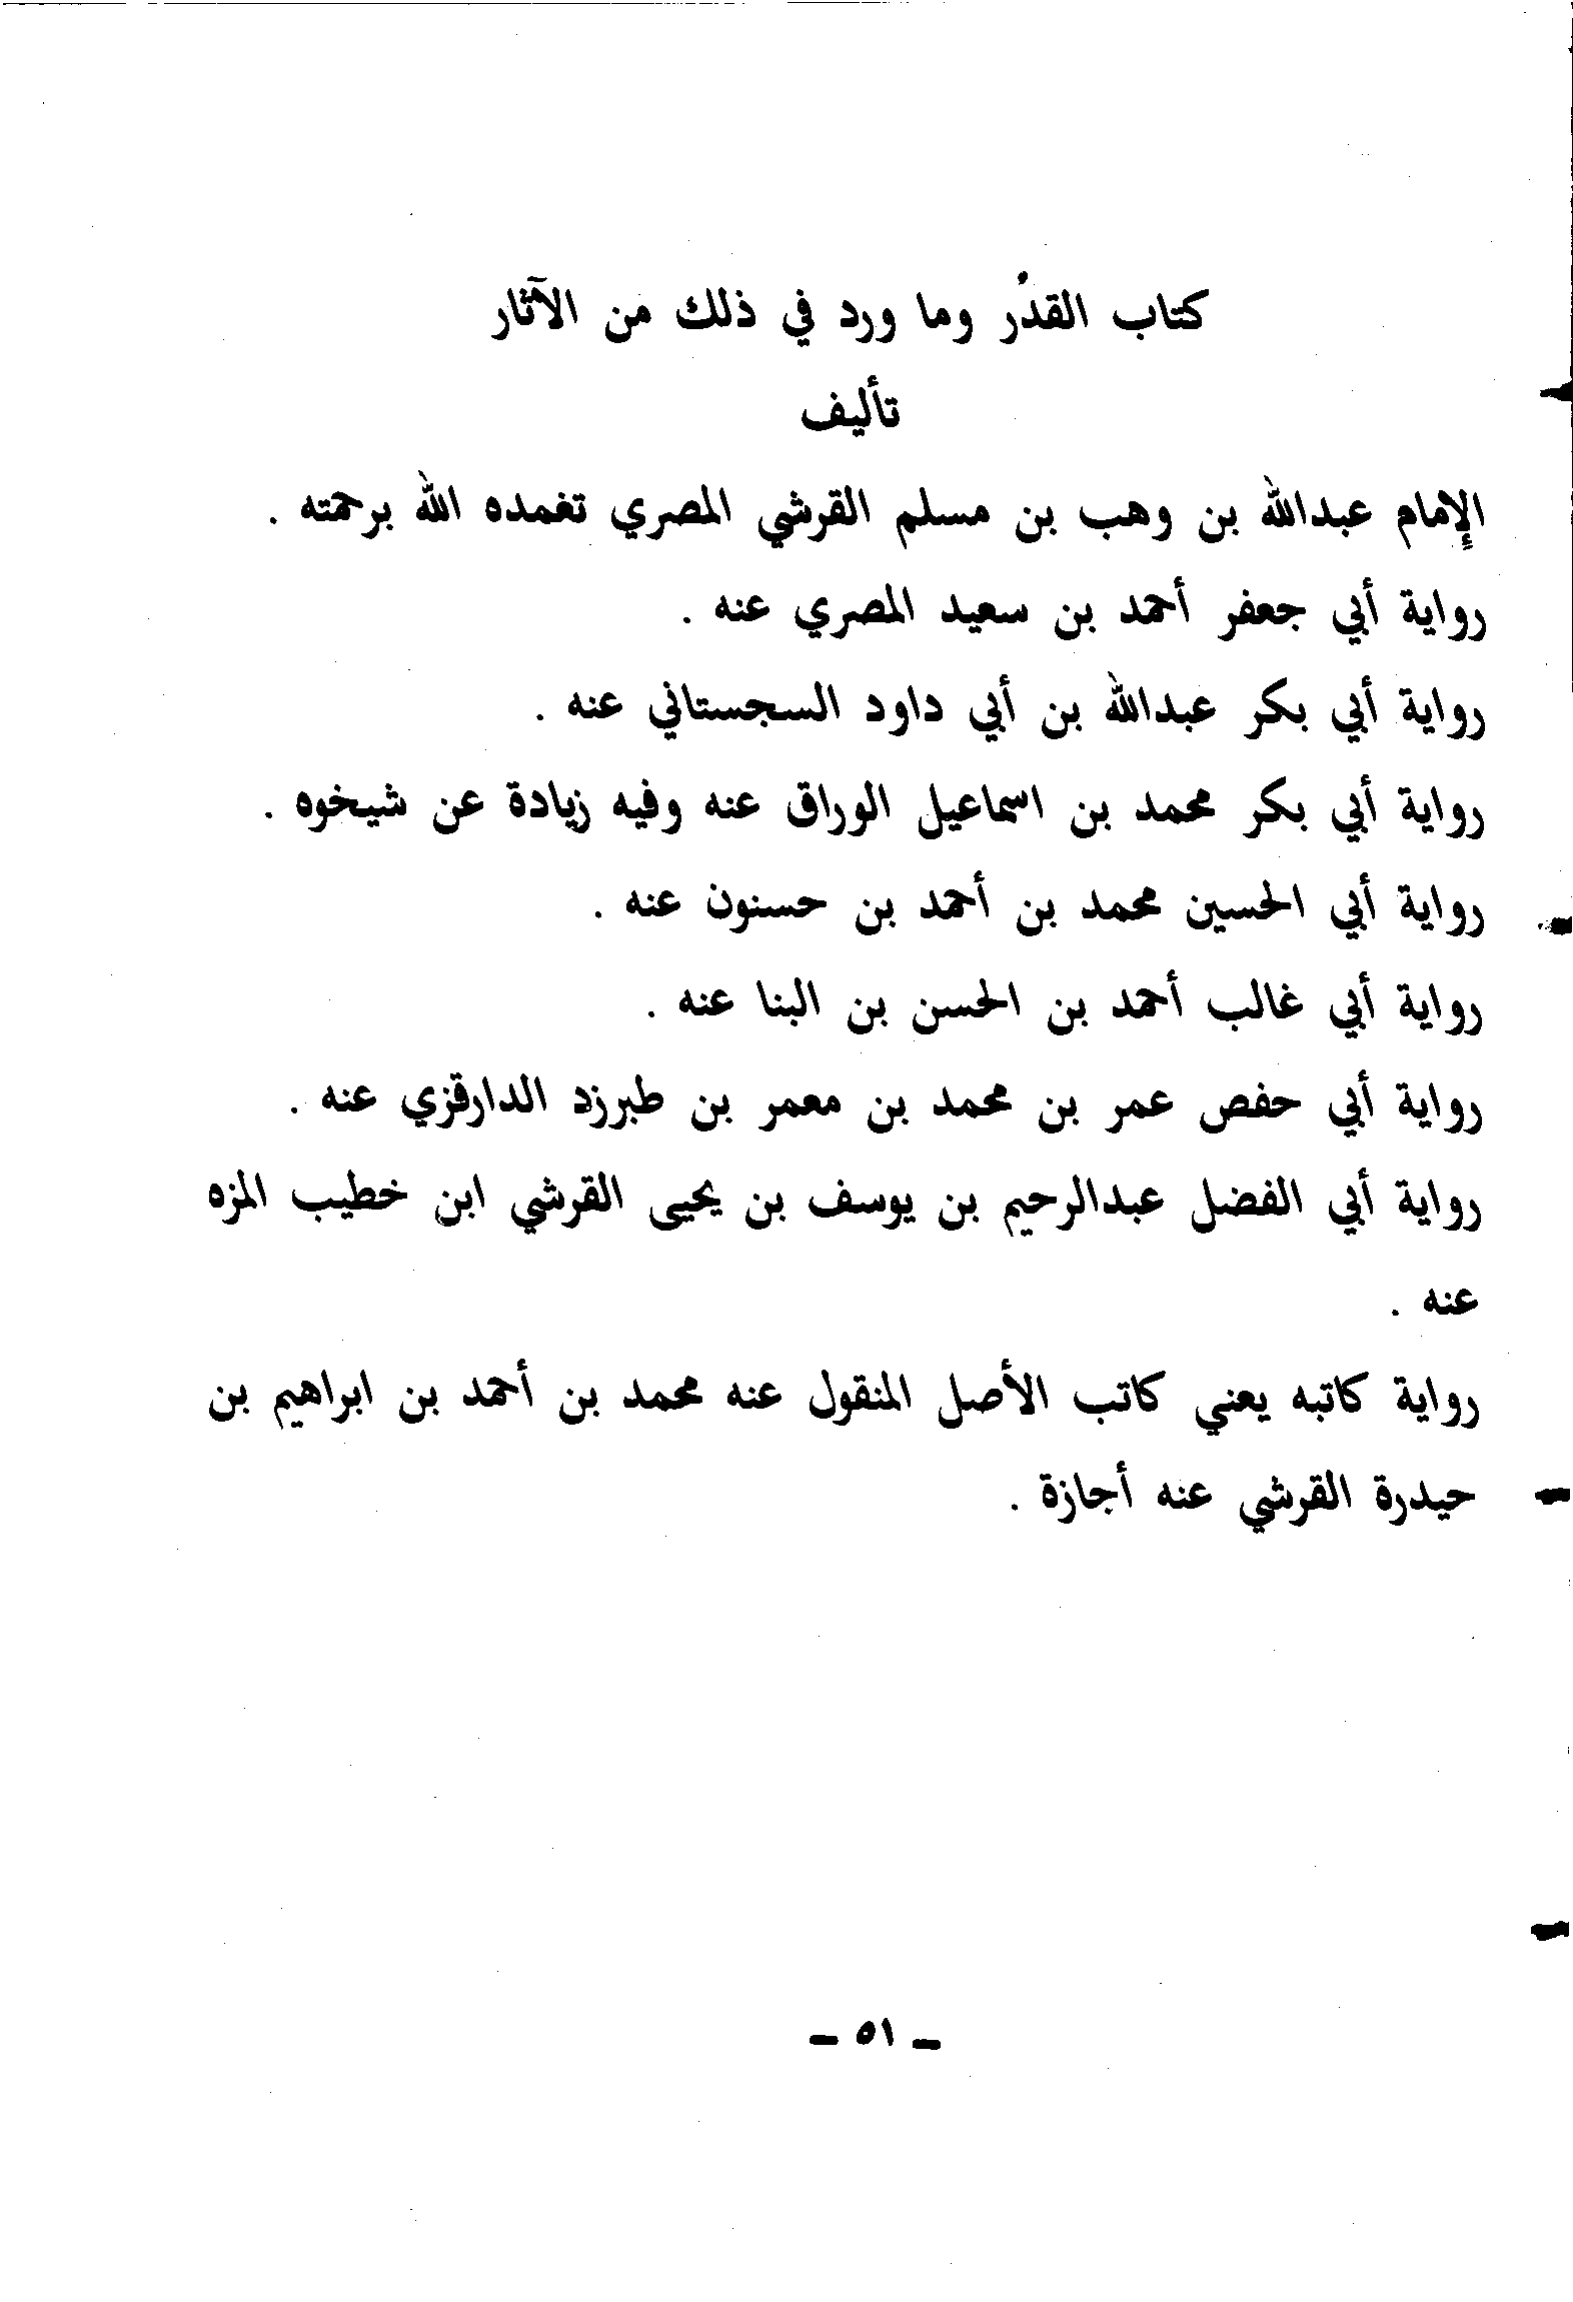 كتاب القدر وما ورد في ذلك من الآثار
تأليف
الإمام عبدالله بن وهب بن مسلم القرشي المصري تغمده الله برحمته .
رواية أبي جعفر أحمد بن سعيد المصري عنه .
رواية أبي بكر عبدالله بن أبي داود السجستاني عنه .
رواية أبي بكر محمد بن اسماعيل الوراق عنه وفيه زيادة عن شيخوه .
رواية أبي الحسين محمد بن أحمد بن حسنون عنه .
رواية أبي غالب أحمد بن الحسن بن البنا عنه .
رواية أبي حفص عمر بن محمد بن معمر بن طبرزد الدارقزي عنه .
رواية أبي الفضل عبدالرحيم بن يوسف بن يحيى القرشي ابن خطيب المزه
عنه .
رواية كاتبه يعني كاتب الأصل المنقول عنه محمد بن أحمد بن ابراهيم بن
حيدرة القرشي عنه أجازة .
– ٥١ –